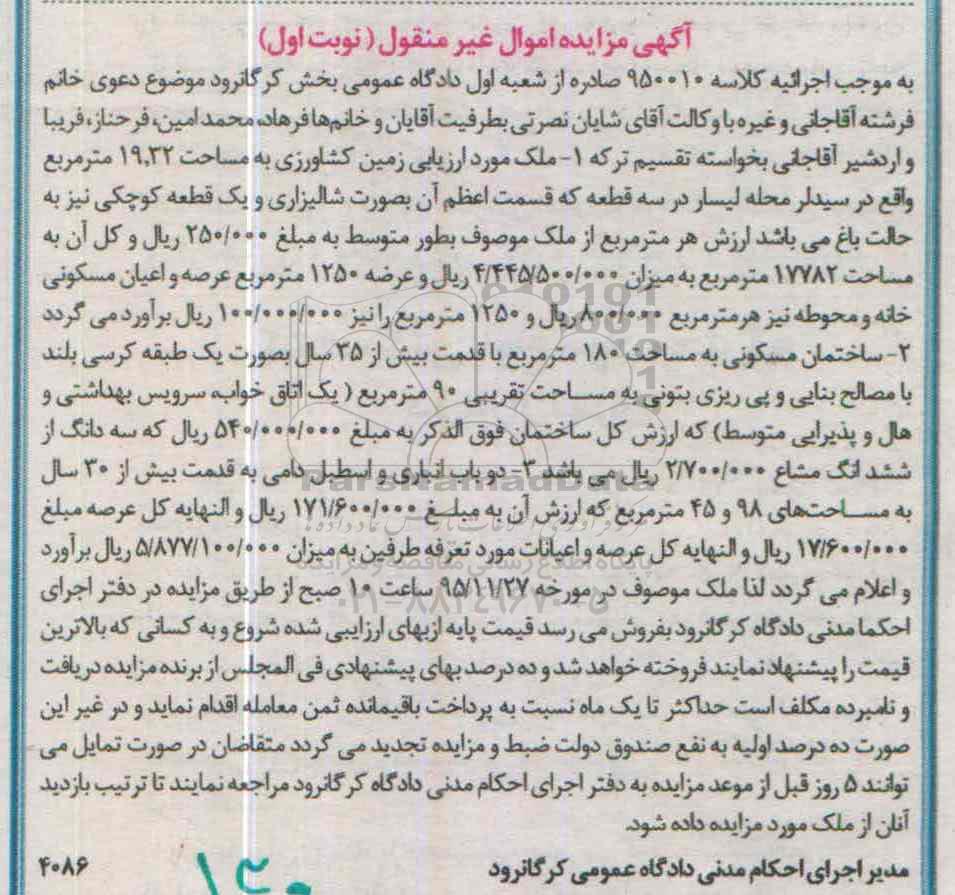 آگهی مزایده اموال غیر منقول (نوبت اول)
به موجب اجرائیه کلاسه ۹۵۰۰۱۰ صادره از شعبه اول دادگاه عمومی بخش کرگانرود موضوع دعوی خانم
فرشته آقاجانی و غیره با وکالت آقای شایان نصرتی بطرفیت آقایان و خانم‌ها فرهاد، محمد امین، فرحناز، فریبا
و اردشیر آقاجانی بخواسته تقسیم ترکه ۱- ملک مورد ارزیابی زمین کشاورزی به مساحت ۱۹٫۳۲ مترمربع
واقع در سیدلر محله لیسار در سه قطعه که قسمت اعظم آن بصورت شالیزاری و یک قطعه کوچکی نیز به
حالت باغ می باشد ارزش هر مترمربع از ملک موصوف بطور متوسط به مبلغ ۲۵۰/۰۰۰ ریال و کل آن به
مساحت ۱۷۷۸۲ مترمربع به میزان ۴/۴۴۵/۵۰۰/۰۰۰ ریال و عرضه ۱۲۵۰ مترمربع عرصه و اعیان مسکونی
خانه و محوطه نیز هر مترمربع ۸۰۰/۰۰۰ ریال و ۱۲۵۰ مترمربع را نیز ۱۰۰/۰۰۰/۰۰۰ ریال برآورد می گردد
۲- ساختمان مسکونی به مساحت ۱۸۰ مترمربع با قدمت بیش از ۳۵ سال بصورت یک طبقه کرسی بلند
با مصالح بنایی و پی ریزی بتونی به مساحت تقریبی ۹۰ مترمربع ( یک اتاق خواب، سرویس بهداشتی و
هال و پذیرایی متوسط) که ارزش کل ساختمان فوق الذکر به مبلغ ۵۴۰/۰۰۰/۰۰۰ ریال که سه دانگ از
ششد انگ مشاع ۲/۷۰۰/۰۰۰ ریال می باشد ۳- دو باب انباری و اسطبل دامی به قدمت بیش از ۳۰ سال
به مساحت‌های ۹۸ و ۴۵ مترمربع که ارزش آن به مبلغ ۱۷۱/۶۰۰/۰۰۰ ریال و النهایه کل عرصه مبلغ
۱۷/۶۰۰/۰۰۰ ریال و النهایه کل عرصه و اعیانات مورد تعرفه طرفین به میزان ۵/۸۷۷/۱۰۰/۰۰۰ ریال برآورد
و اعلام می گردد لذا ملک موصوف در مورخه ۹۵/۱۱/۲۷ ساعت ۱۰ صبح از طریق مزایده در دفتر اجرای
احکما مدنی دادگاه کرگانرود بفروش می رسد قیمت پایه ازبهای ارزایبی شده شروع و به کسانی که بالاترین
قیمت را پیشنهاد نمایند فروخته خواهد شد و ده درصد بهای پیشنهادی فی المجلس از برنده مزایده دریافت
و نامبرده مکلف است حداکثر تا یک ماه نسبت به پرداخت باقیمانده ثمن معامله اقدام نماید و در غیر این
صورت ده درصد اولیه به نفع صندوق دولت ضبط و مزایده تجدید می گردد متقاضان در صورت تمایل می
توانند ۵ روز قبل از موعد مزایده به دفتر اجرای احکام مدنی دادگاه کرگانرود مراجعه نمایند تا ترتیب بازدید
آنان از ملک مورد مزایده داده شود.
مدیر اجرای احکام مدنی دادگاه عمومی کرگانرود
۴۰۸۶
ParsNamadData
پایگاه اطلاع رسانی مناقصه و مزایده
۰۲۱-۸۸۳۴۹۶۷۰-۵